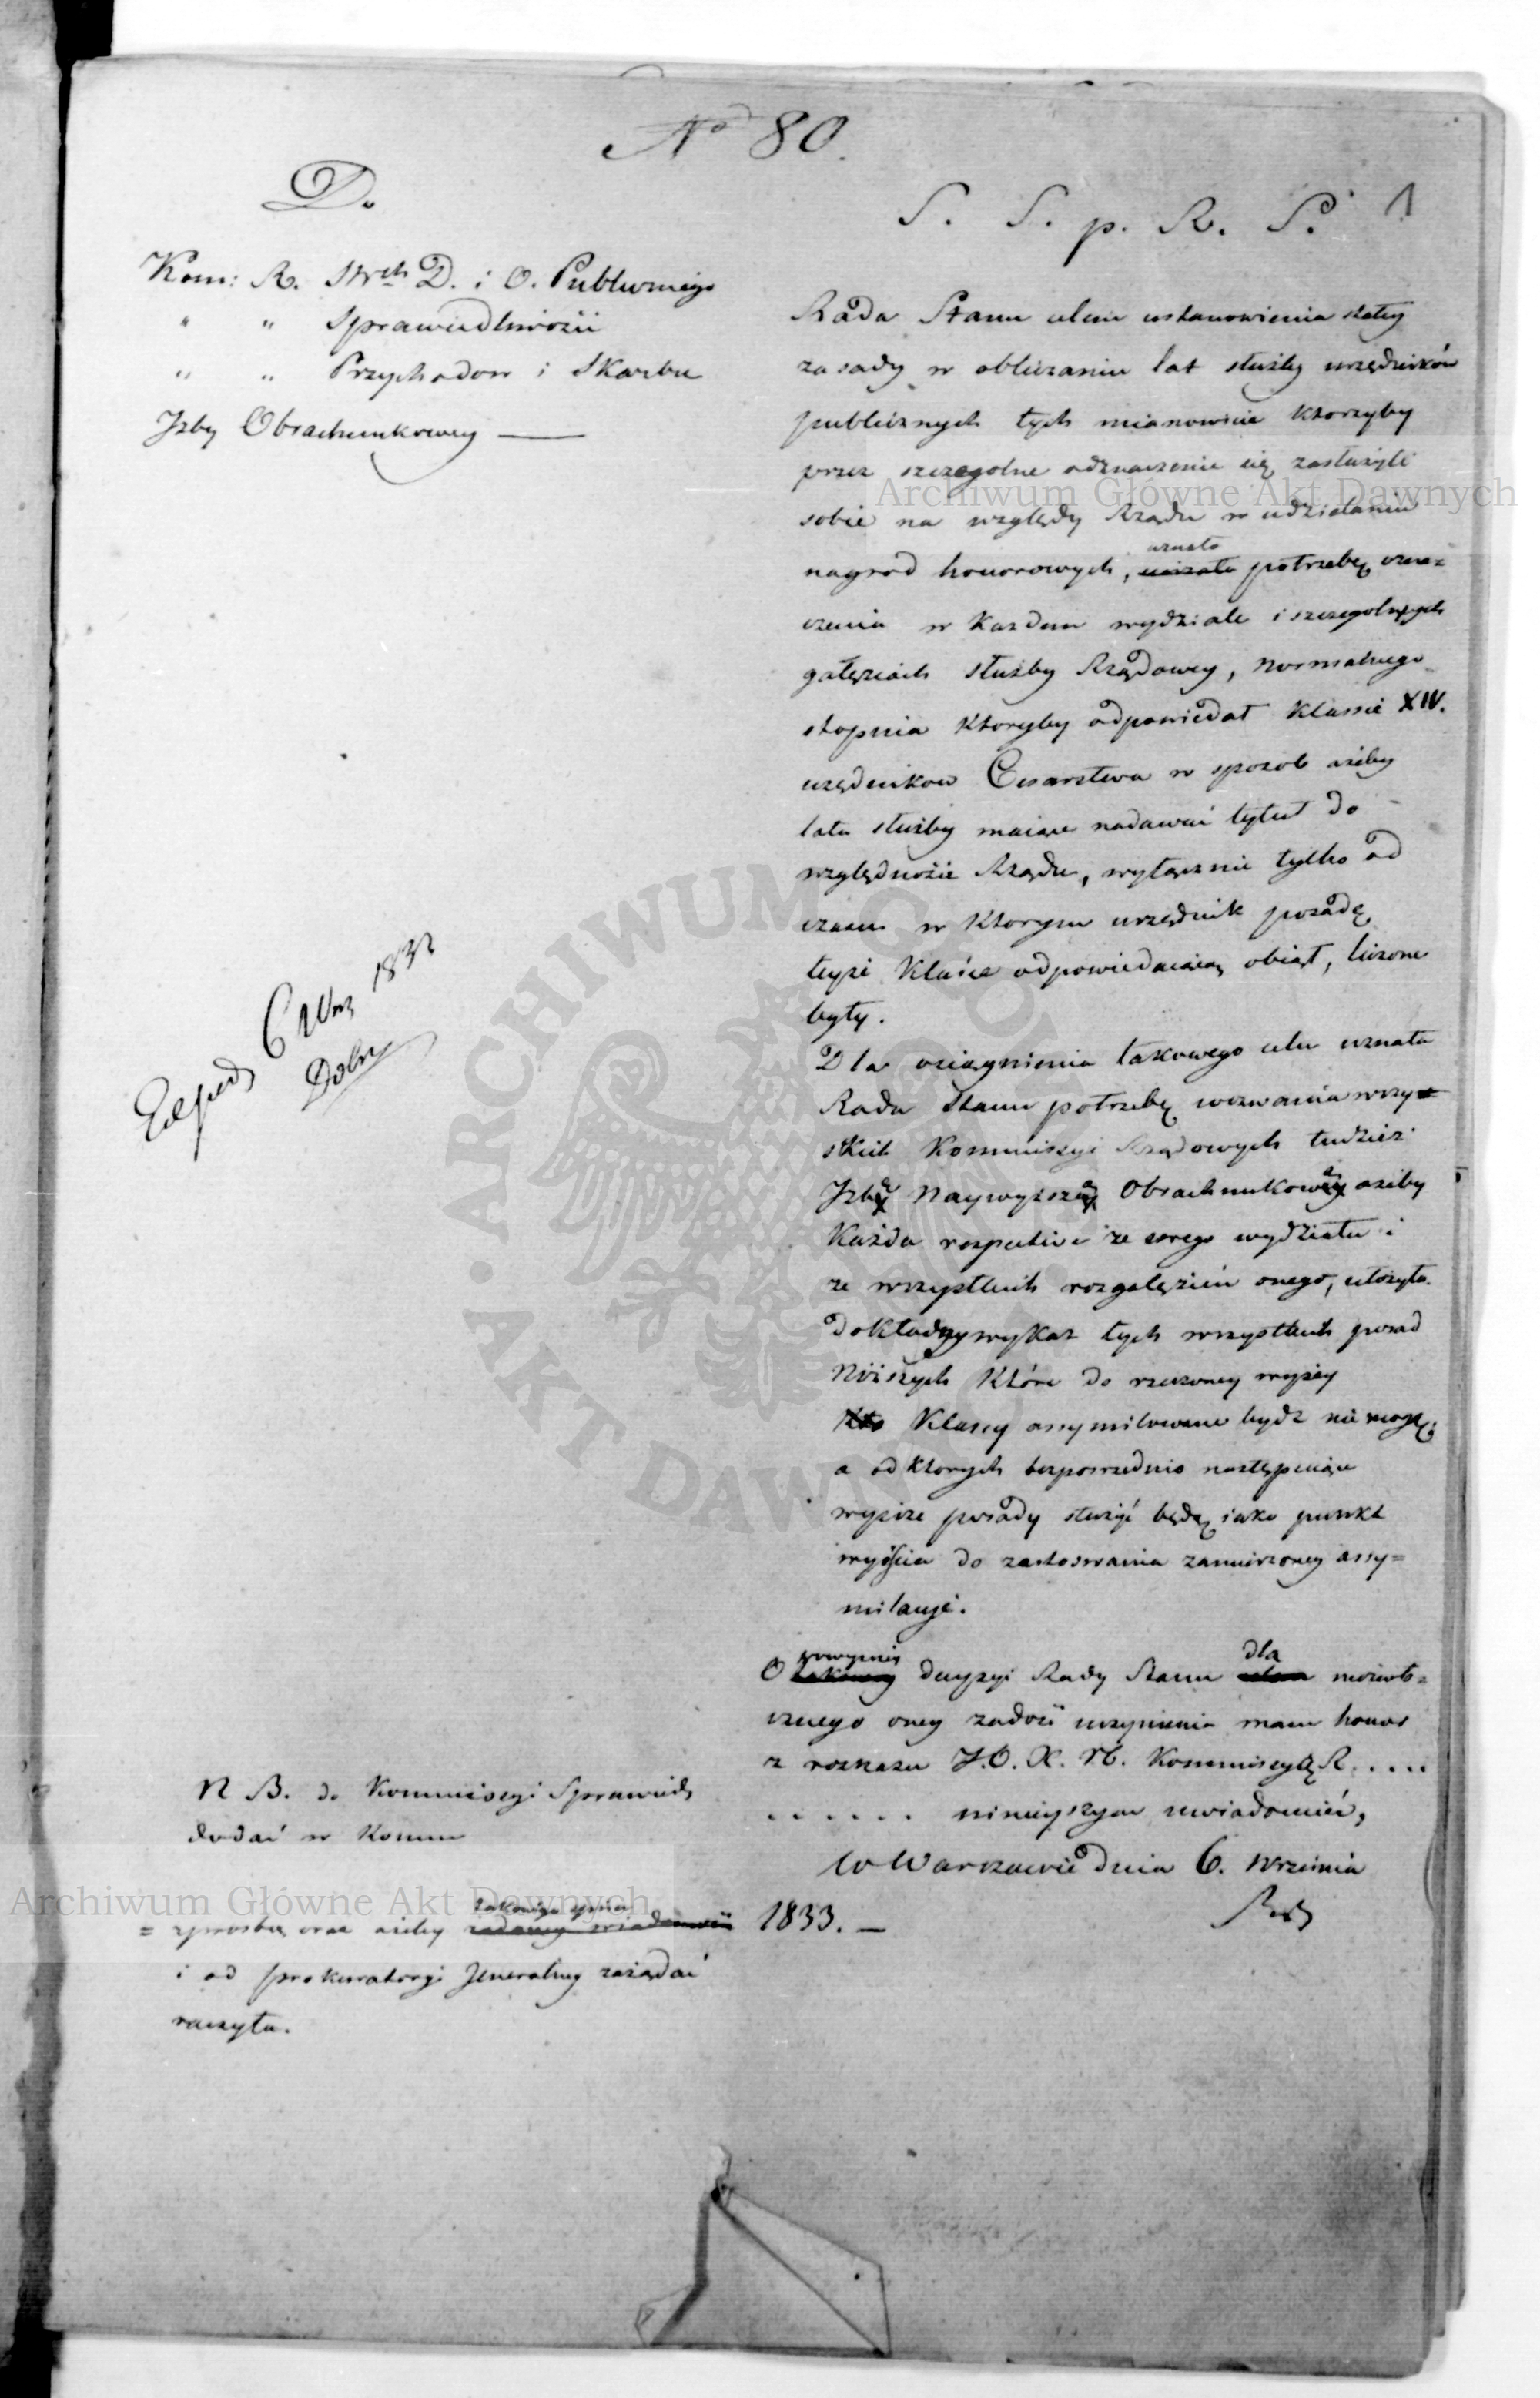 No 80.
D.
Kom: R. SWch D. i O. Publicznego
" " Sprawiedliwości
" " Przychodow i Skarbu
Izby Obrachunkowey
S. S. p. R. S. 1
Rada Stanu celem ustanowienia stałey
zasady w obliczaniu lat służby urzędników
publicznych tych mianowicie ktorzyby
przez szczegolne odznaczenie się zasłużyli
sobie na względy Rządu w udzielaniu
nagrod honorowych, uznała potrzebę ozna=
czenia w każdem wydziale i szczegolnych
gałęziach służby Rządowey, normalnego
stopnia ktoryby odpowiedał klassie XIV.
urzędnikow Cesarstwa w sposob ażeby
lata służby maiące nadawać tytuł do
względności Rządu, wyłącznie tylko od
czasu w ktorym urzędnik posadę
teyże klassie odpowiedaiącą obiął, liczone
były.
Dla osiągnienia takowego celu uznała
Rada Stanu potrzebę wezwania wszy=
stkich Kommissyi Rządowych tudzież
Izbę Naywyższą Obrachunkową ażeby
Każda respective ze swego wydziału i
ze wszystkich rozgałęzień onego, ułożyła
dokładny wykaz tych wszystkich posad
niższych które do rzeczoney wyżey
Klassy assymilowane bydź nie mogą,
a od ktorych bezpośrednio następuiące
wyższe posady służyć będą iako punkt
wyiścia do zastosowania zamierzoney assy=
milacyi.
O powyższey decyzyi Rady Stanu dla niezwło=
cznego oney zadość uczynienia mam honor
z rozkazu J.O.X.N. Kommissyą R. . . . .
. . . . . . ninieyszym uwiadomić,
w Warszawie dnia 6. Września
1833. —
Exped 6 Wrz 1833
N B. do Kommissyi Sprawied.
dodać w Koncu
= z prośbą oraz ażeby takowego spisu
i od prokuratoryi Jeneralney zażądać
raczyła.
Archiwum Główne Akt Dawnych
Archiwum Główne Akt Dawnych